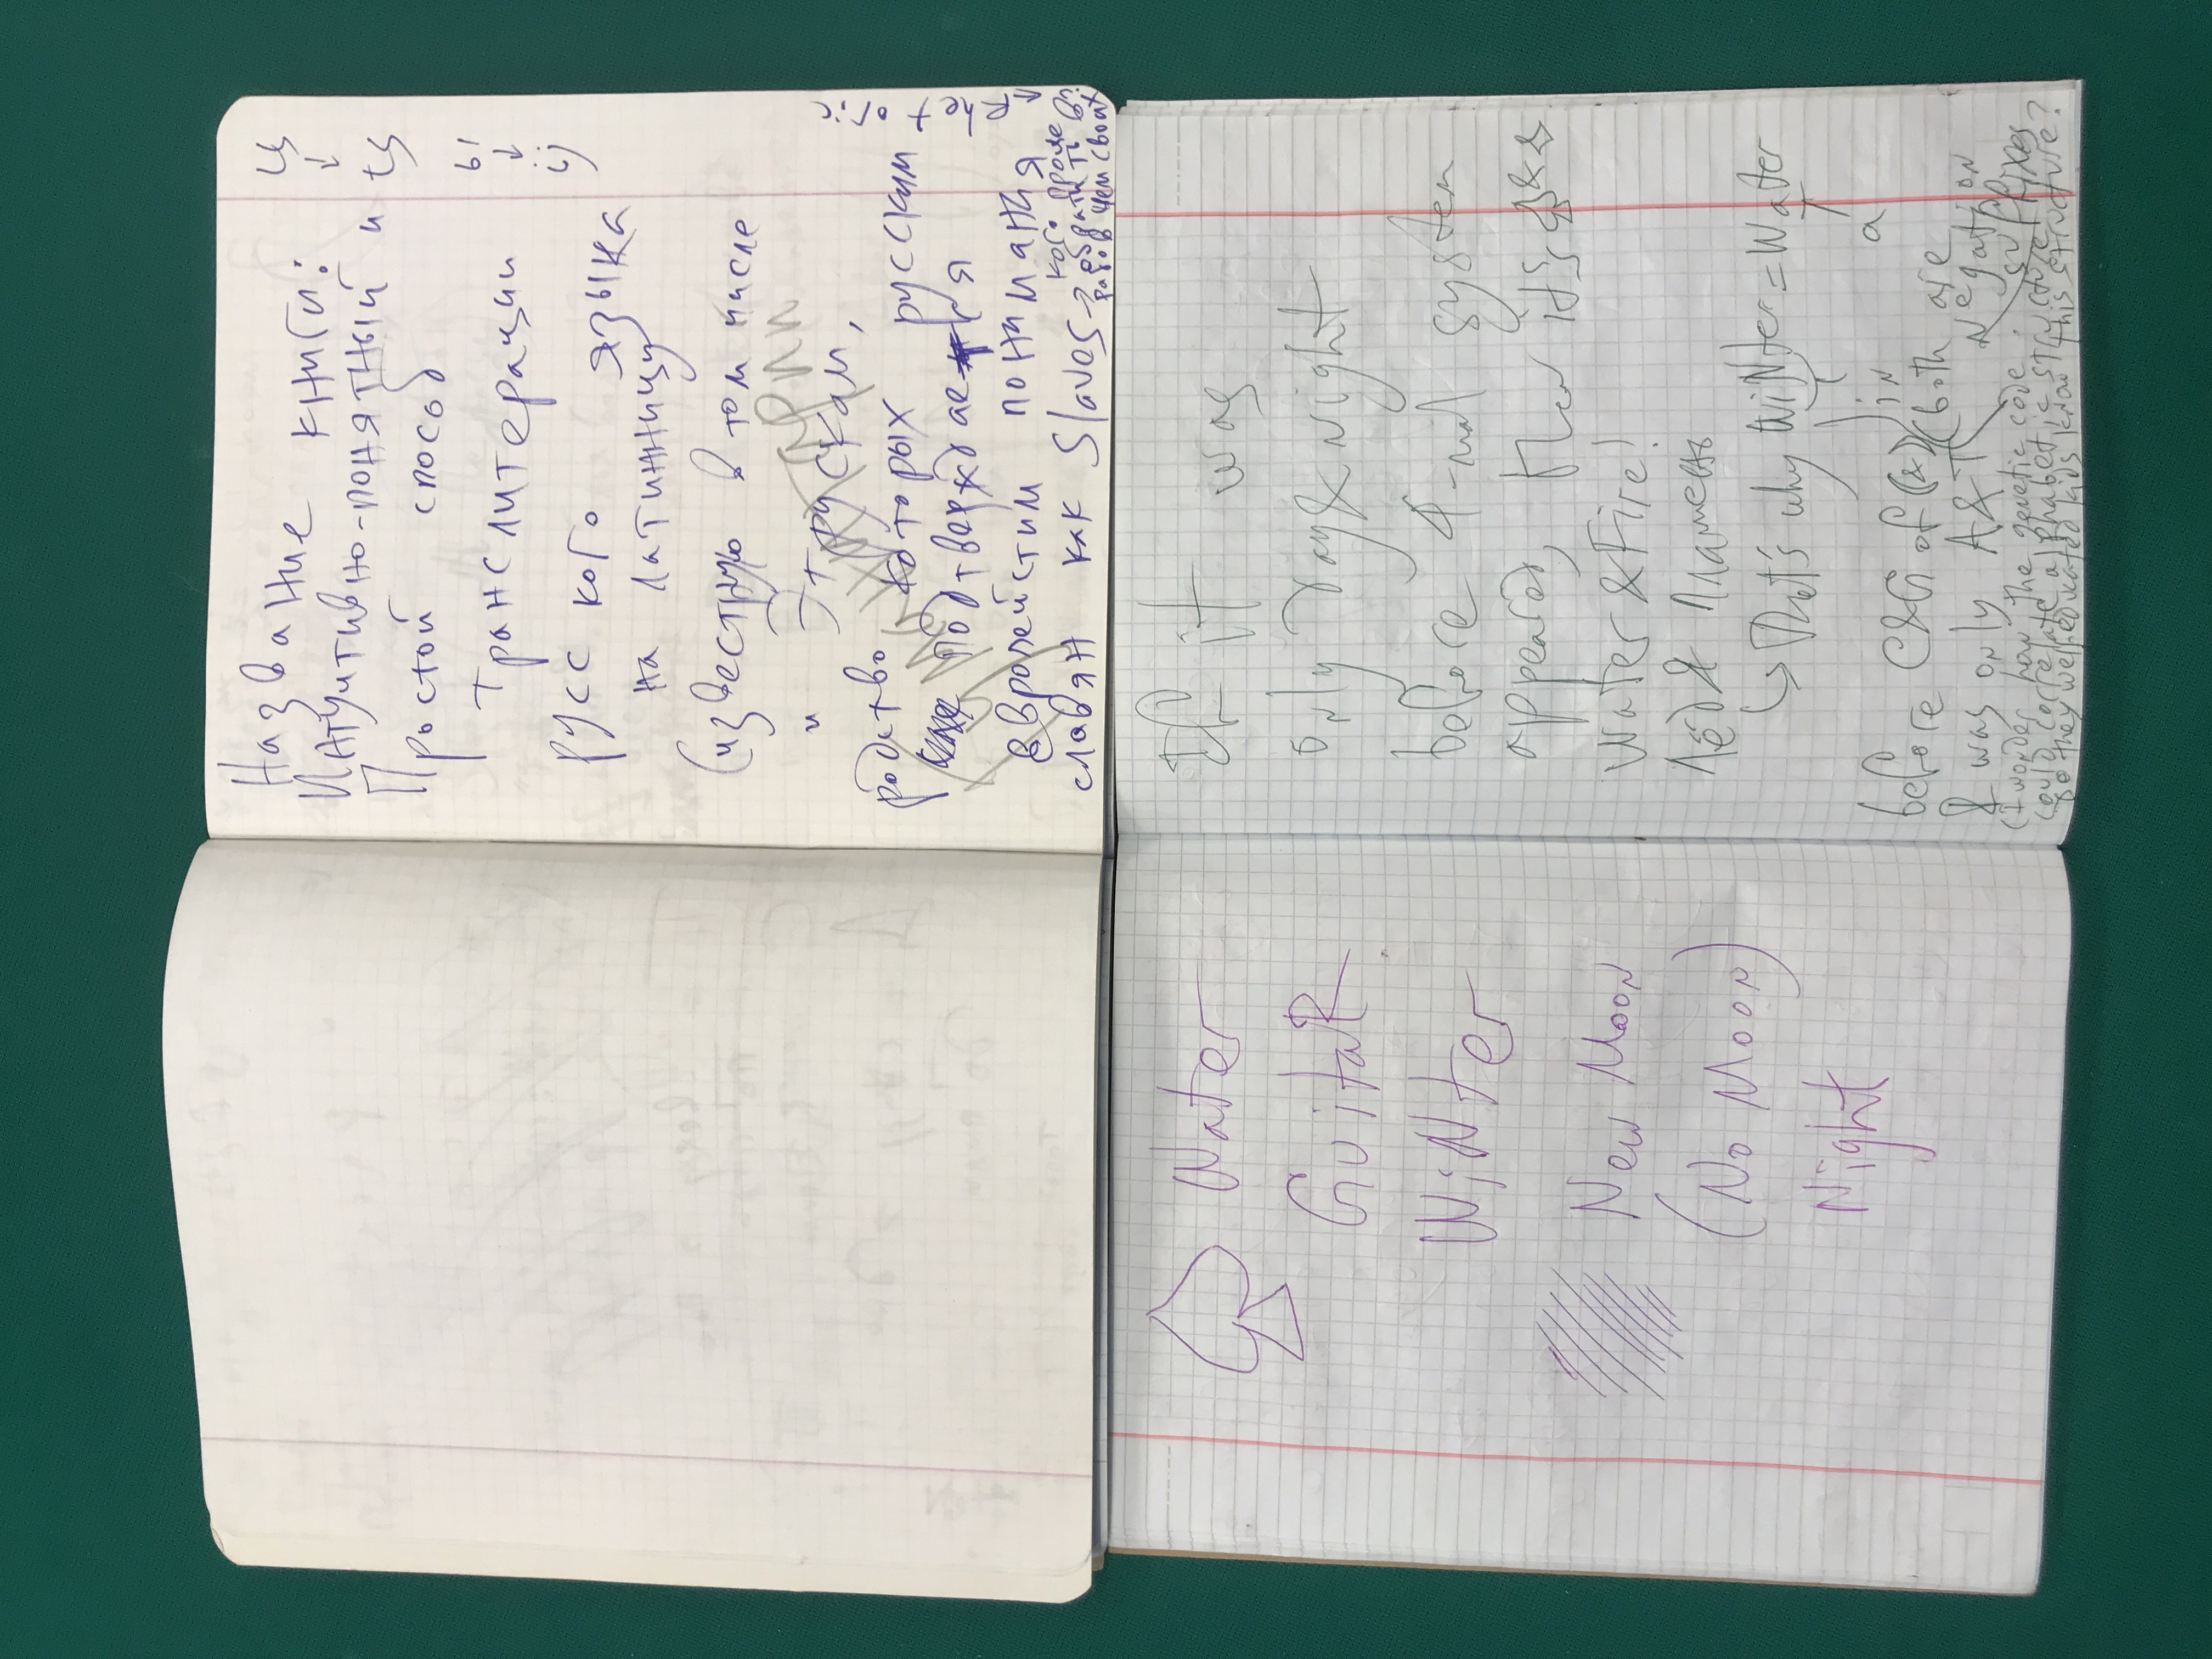 Название книги:
Интуитивно-понятный и
Простой способ
транслитерации
русского языка
на латинницу
(известную в том числе
и Этрускам,
родство которых русским
подтверждается
европейстим понимания
славян как Slaves →
кого проще
обратить в
рабов чем своих?
← Rhetoric
Гуманитарии
ц
↓
ts
ы
↓
ij
Water
GuitaR
WiNter
New Moon
(No Moon)
Night
If it was
only day & night
before 4-nal system
appeared, then it's ♤ & ♧
Water & Fire!
лёд & пламень
↳ That's why WiNter = Water
in
a
before C&G of (&)
& was only A&T
(both are
Negation
suffixes
(I wonder how the genetic code
could correlate alphabetic structure
Do they well educated kids know this structure?